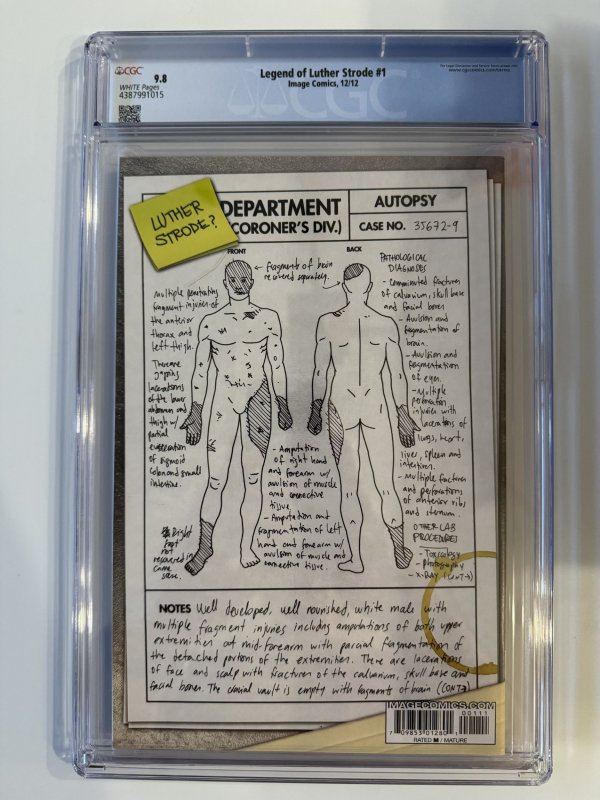 CGC
9.8
WHITE Pages
4387991015
Legend of Luther Strode #1
Image Comics, 12/12
www.cgccomics.com/terms
LUTHER
STRODE?
DEPARTMENT
(CORONER'S DIV.)
AUTOPSY
CASE NO. 35672-9
FRONT
BACK
fragments of brain
recovered separately.
multiple penetrating
fragment injuries of
the anterior
thorax and
left thigh.
There are
gaping
lacerations
of the lower
abdomen and
thigh w/
partial
evisceration
of sigmoid
colon and small
intestine.
Right
foot
not
recovered in
same
- Amputation
of right hand
and forearm w/
avulsion of muscle
and connective
tissue.
- Amputation and
fragmentation of left
hand and forearm w/
avulsion of muscle and
connective tissue.
PATHOLOGICAL
DIAGNOSES
- Comminuted fractures
of calvarium, skull base
and facial bones
- Avulsion and
fragmentation of
brain.
- Avulsion and
fragmentation
of eyes.
- Multiple
perforation
injuries with
lacerations of
lungs, heart,
liver, spleen and
intestine.
- Multiple fractures
and perforations
of anterior ribs
and sternum.
OTHER LAB
PROCEDURES
- Toxicology
- Photography
- X-RAY (CONT→)
NOTES Well developed, well nourished, white male with
multiple fragment injuries including amputations of both upper
extremities at mid-forearm with parcial fragmentation of
the detatched portions of the extremities. There are lacerations
of face and scalp with fractures of the calvarium, skull base and
facial bones. The cranial vault is empty with fragments of brain (CONT→)
IMAGECOMICS.COM
00111
7 09853 01280 1
RATED M / MATURE